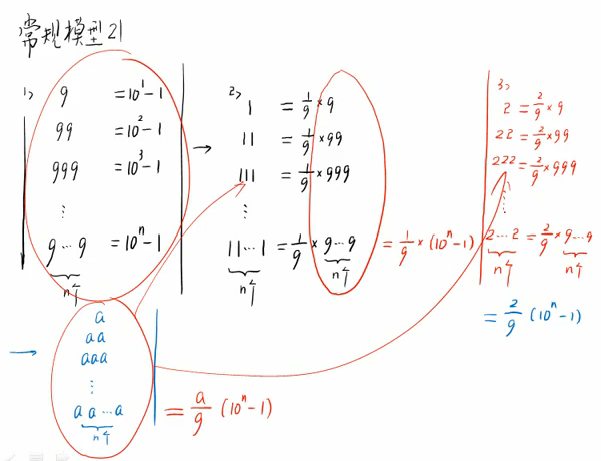 常规模型21
1>
9 = 10¹-1
99 = 10²-1
999 = 10³-1
⋮
9…9 = 10ⁿ-1
n个
→
2>
1 = 1/9 × 9
11 = 1/9 × 99
111 = 1/9 × 999
⋮
11…1 = 1/9 × 9…9 = 1/9 × (10ⁿ-1)
n个 n个
3>
2 = 2/9 × 9
22 = 2/9 × 99
222 = 2/9 × 999
⋮
2…2 = 2/9 × 9…9
n个 n个
= 2/9 (10ⁿ-1)
→
a
aa
aaa
⋮
aa…a = a/9 (10ⁿ-1)
n个